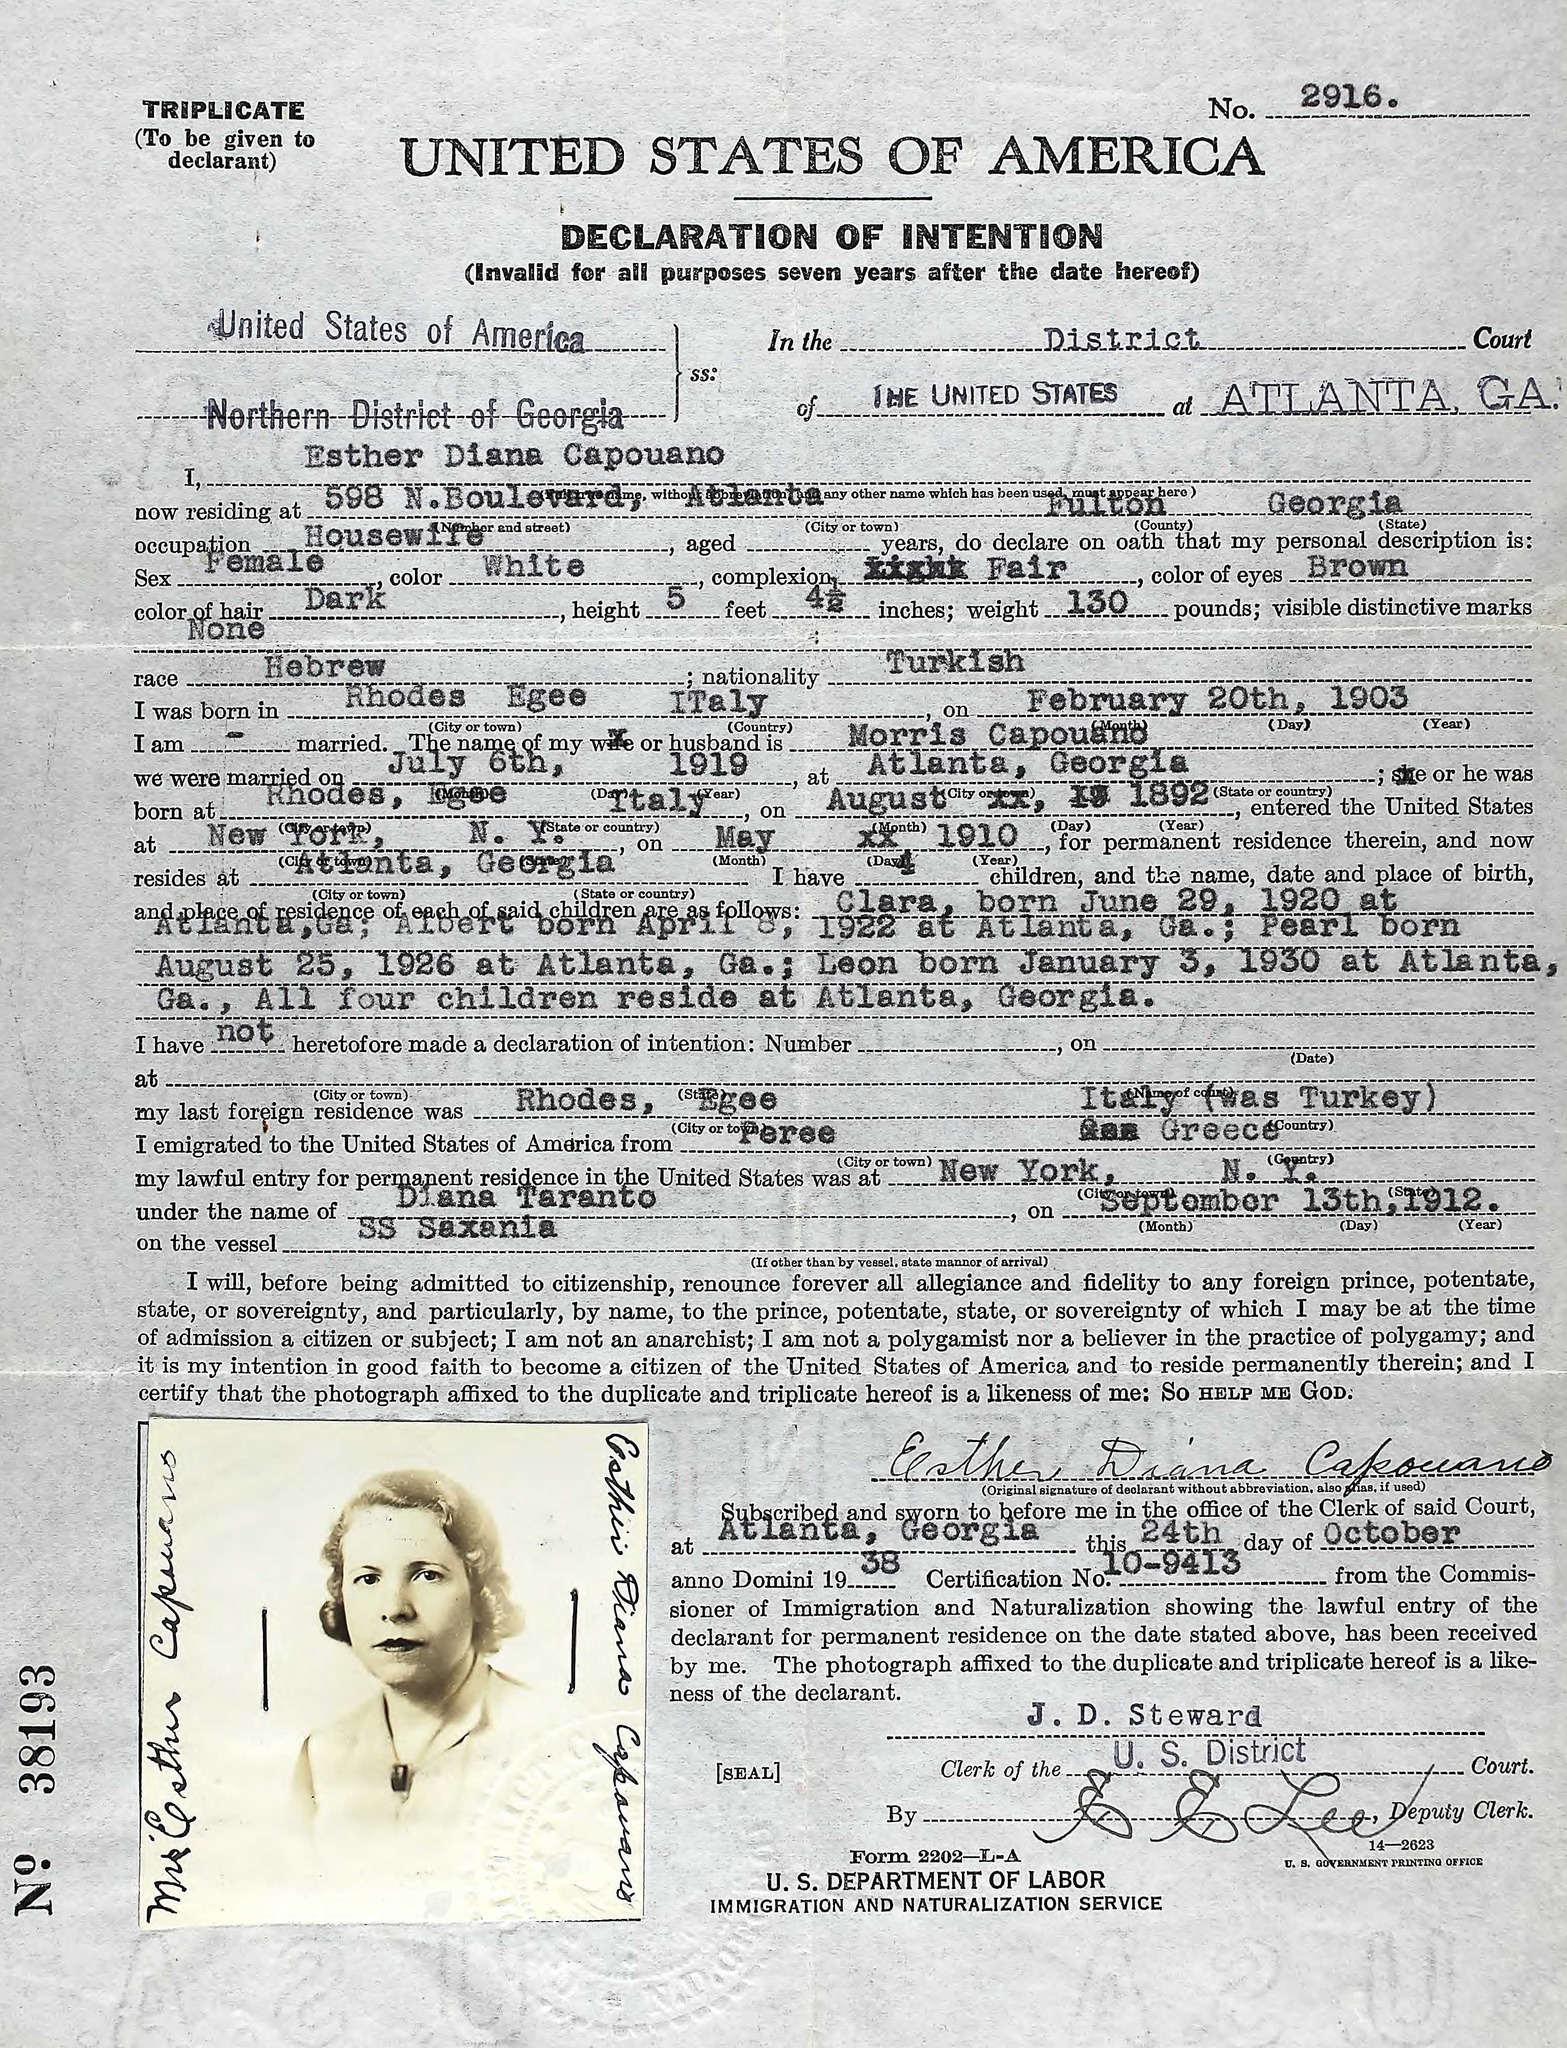 TRIPLICATE
(To be given to
declarant)
No. 2916.
UNITED STATES OF AMERICA
DECLARATION OF INTENTION
(Invalid for all purposes seven years after the date hereof)
United States of America
Northern District of Georgia
ss:
In the District Court
of THE UNITED STATES at ATLANTA, GA.
I, Esther Diana Capouano
(Full true name, without abbreviation, and any other name which has been used, must appear here)
now residing at 598 N.Boulevard, Atlanta Fulton Georgia
(Number and street) (City or town) (County) (State)
occupation Housewife, aged years, do declare on oath that my personal description is:
Sex Female, color White, complexion Fair, color of eyes Brown
color of hair Dark, height 5 feet 4½ inches; weight 130 pounds; visible distinctive marks
None
race Hebrew; nationality Turkish
I was born in Rhodes Egee ITaly, on February 20th, 1903
(City or town) (Country) (Month) (Day) (Year)
I am - married. The name of my wife or husband is Morris Capouano
we were married on July 6th, 1919, at Atlanta, Georgia; she or he was
(Month) (Day) (Year) (City or town) (State or country)
born at Rhodes, Egee Italy, on August xx, 1892, entered the United States
(City or town) (State or country) (Month) (Day) (Year)
at New York, N. Y., on May xx 1910, for permanent residence therein, and now
(City or town) (State) (Month) (Day) (Year)
resides at Atlanta, Georgia I have 4 children, and the name, date and place of birth,
(City or town) (State or country)
and place of residence of each of said children are as follows: Clara, born June 29, 1920 at
Atlanta,Ga; Albert born April 8, 1922 at Atlanta, Ga.; Pearl born
August 25, 1926 at Atlanta, Ga.; Leon born January 3, 1930 at Atlanta,
Ga., All four children reside at Atlanta, Georgia.
I have not heretofore made a declaration of intention: Number, on
(Date)
at
(City or town) (State) (Name of court)
my last foreign residence was Rhodes, Egee Italy (was Turkey)
(City or town) (Country)
I emigrated to the United States of America from Peree Greece
(City or town) (Country)
my lawful entry for permanent residence in the United States was at New York, N. Y.
(City or town) (State)
under the name of Diana Taranto, on September 13th, 1912.
(Month) (Day) (Year)
on the vessel SS Saxania
(If other than by vessel, state mannor of arrival)
I will, before being admitted to citizenship, renounce forever all allegiance and fidelity to any foreign prince, potentate,
state, or sovereignty, and particularly, by name, to the prince, potentate, state, or sovereignty of which I may be at the time
of admission a citizen or subject; I am not an anarchist; I am not a polygamist nor a believer in the practice of polygamy; and
it is my intention in good faith to become a citizen of the United States of America and to reside permanently therein; and I
certify that the photograph affixed to the duplicate and triplicate hereof is a likeness of me: SO HELP ME GOD.
Esther Diana Capouano
(Original signature of declarant without abbreviation, also alias, if used)
Subscribed and sworn to before me in the office of the Clerk of said Court,
at Atlanta, Georgia this 24th day of October
anno Domini 1938 Certification No. 10-9413 from the Commis-
sioner of Immigration and Naturalization showing the lawful entry of the
declarant for permanent residence on the date stated above, has been received
by me. The photograph affixed to the duplicate and triplicate hereof is a like-
ness of the declarant.
J. D. Steward
[SEAL] Clerk of the U. S. District Court.
By E E Lee, Deputy Clerk.
Form 2202—L-A
14—2623
U. S. GOVERNMENT PRINTING OFFICE
U. S. DEPARTMENT OF LABOR
IMMIGRATION AND NATURALIZATION SERVICE
Mrs Esther Capouano
Esthir Diana Capouano
No 38193